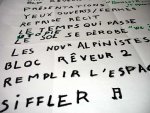 PRÉSENTATIONS
YEUX OUVERTS/FERMÉS
REPRISE RÉCIT
LE TEMPS QUI PASSE
LE SOL SE DÉROBE
LES NOUV ALPINISTES
BLOC RÊVEUR 2
REMPLIR L'ESPAC
SIFFLER